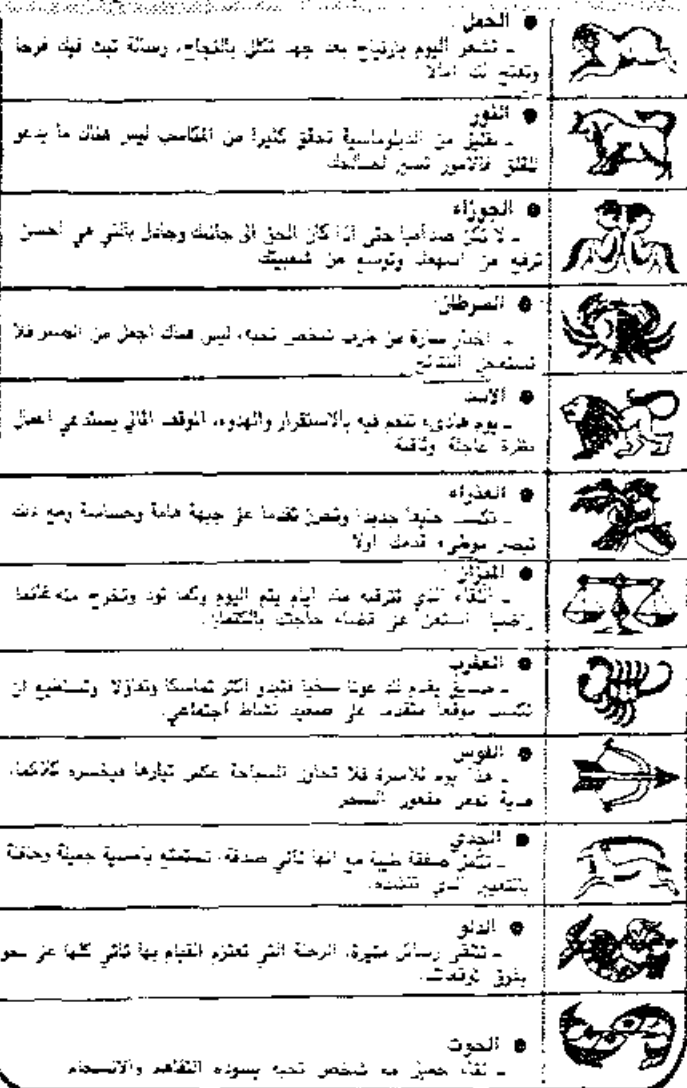 ● الحمل
ـ تشعر اليوم بارتياح بعد جهد تكلل بالنجاح، رسالة تبث فيك فرحا
وتفتح لك آمالا
● الثور
ـ بقليل من الدبلوماسية تحقق كثيرا من المكاسب ليس هناك ما يدعو
للقلق فالأمور تسير لصالحك
● الجوزاء
ـ لا تكن صداميا حتى اذا كان الحق الى جانبك وجادل بالتي هي احسن
ترفع من اسهمك وتوسع من شعبيتك
● السرطان
ـ اخبار سارة من طرف شخص تحبه، ليس هناك اجمل من الصبر فلا
تستعجل النتائج
● الأسد
ـ يوم هادىء تنعم فيه بالاستقرار والهدوء، الموقف المالي يستدعي اعمال
نظرة عاجلة وثاقبة
● العذراء
ـ تكسب حليفا جديدا وتحرز تقدما على جبهة هامة وحساسة ومع ذلك
تبصر موطىء قدمك اولا
● الميزان
ـ اللقاء الذي تترقبه منذ ايام يتم اليوم وكما تود وتخرج منه غانما
راضيا استعن على قضاء حاجتك بالكتمان.
● العقرب
ـ صديق يقدم لك عونا سخيا فتبدو اكثر تماسكا وتفاؤلا وتستطيع ان
تكسب موقعا متقدما على صعيد نشاط اجتماعي.
● القوس
ـ هذا يوم للاسرة فلا تحاول السباحة عكس تيارها فيخسره كلاكما،
هدية تفعل مفعول السحر
● الجدي
ـ تكمل صفقة طيبة مع انها تأتي صدفة، تستمتع بأمسية جميلة وحافلة
بالتغيير الذي تنشده.
● الدلو
ـ تتلقى رسائل مثيرة، الرحلة التي تعتزم القيام بها تأتي كلها على نحو
يفوق توقعاتك.
● الحوت
ـ لقاء جميل مع شخص تحبه يسوده التفاهم والانسجام